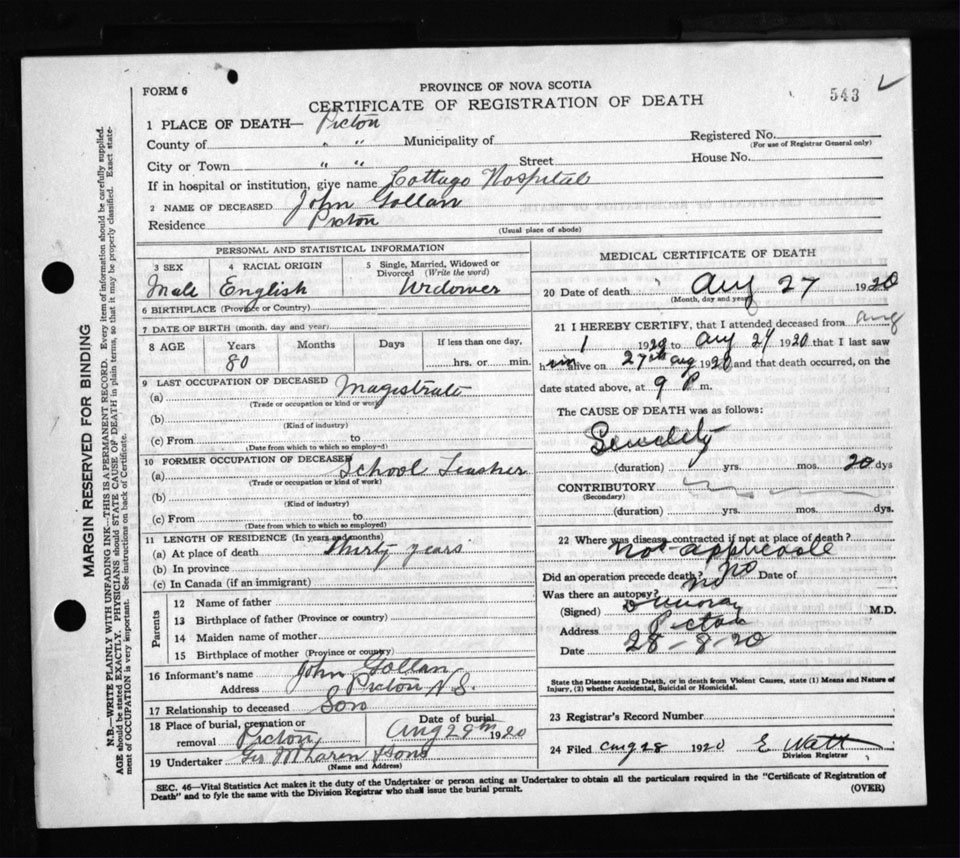 FORM 6
PROVINCE OF NOVA SCOTIA
CERTIFICATE OF REGISTRATION OF DEATH
543
1 PLACE OF DEATH— Picton
County of " " Municipality of
Registered No.
(For use of Registrar General only)
City or Town " " Street House No.
If in hospital or institution, give name Cottage Hospital
2 NAME OF DECEASED John Gollan
Residence Picton
(Usual place of abode)
PERSONAL AND STATISTICAL INFORMATION
3 SEX 4 RACIAL ORIGIN 5 Single, Married, Widowed or Divorced (Write the word)
Male English Widower
6 BIRTHPLACE (Province or Country)
7 DATE OF BIRTH (month, day and year)
8 AGE Years Months Days If less than one day,
80 hrs. or min.
9 LAST OCCUPATION OF DECEASED
(a) Magistrate
(Trade or occupation or kind or work)
(b)
(Kind of industry)
(c) From to
(Date from which to which so employed)
10 FORMER OCCUPATION OF DECEASED
(a) School Teacher
(Trade or occupation or kind of work)
(b)
(Kind of industry)
(c) From to
(Date from which to which so employed)
11 LENGTH OF RESIDENCE (In years and months)
(a) At place of death thirty years
(b) In province
(c) In Canada (if an immigrant)
Parents
12 Name of father
13 Birthplace of father (Province or country)
14 Maiden name of mother
15 Birthplace of mother (Province or country)
16 Informant's name John Gollan
Address Picton N.S.
17 Relationship to deceased Son
18 Place of burial, cremation or removal Picton
Date of burial Aug 29th 1920
19 Undertaker & Sons
(Name and Address)
MEDICAL CERTIFICATE OF DEATH
20 Date of death Aug 27 1920
(Month, day and year)
21 I HEREBY CERTIFY, that I attended deceased from Aug
1 1920 to Aug 27 1920 that I last saw
him alive on 27th Aug 1920 and that death occurred, on the
date stated above, at 9 P m.
The CAUSE OF DEATH was as follows:
Senility
(duration) yrs. mos. 20 dys
CONTRIBUTORY
(Secondary)
(duration) yrs. mos. dys.
22 Where was disease contracted if not at place of death?
not applicable
Did an operation precede death? No Date of
Was there an autopsy? No
(Signed) M.D.
Address Picton
Date 28-8-20
State the Disease causing Death, or in death from Violent Causes, state (1) Means and Nature of Injury, (2) whether Accidental, Suicidal or Homicidal.
23 Registrar's Record Number
24 Filed Aug 28 1920 E Watt
Division Registrar
SEC. 46—Vital Statistics Act makes it the duty of the Undertaker or person acting as Undertaker to obtain all the particulars required in the "Certificate of Registration of
Death" and to fyle the same with the Division Registrar who shall issue the burial permit.
(OVER)
MARGIN RESERVED FOR BINDING
N.B.—WRITE PLAINLY WITH UNFADING INK—THIS IS A PERMANENT RECORD. Every item of information should be carefully supplied.
AGE should be stated EXACTLY. PHYSICIANS should STATE CAUSE OF DEATH in plain terms, so that it may be properly classified. Exact state-
ment of OCCUPATION is very important. See instructions on back of Certificate.